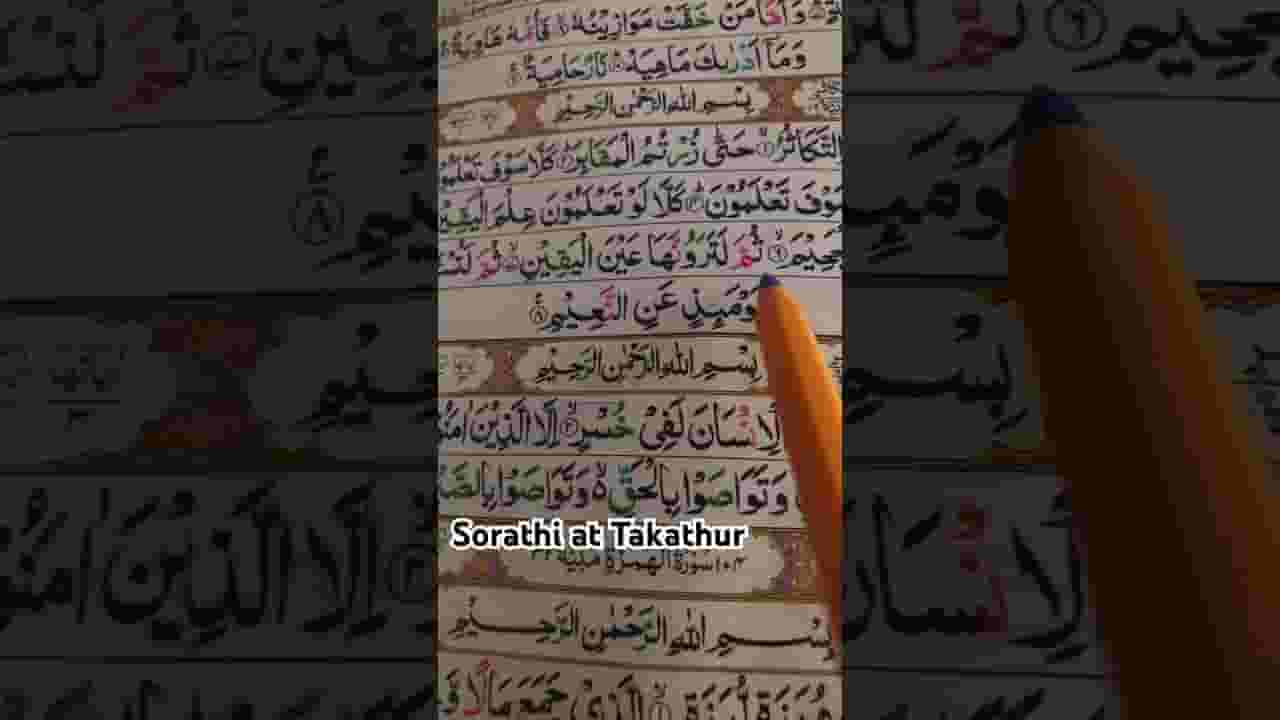 وَاَمَّا مَنْ خَفَّتْ مَوَازِيْنُهٗ ۸ فَاُمُّهٗ هَاوِيَةٌ
وَمَآ اَدْرٰىكَ مَاهِيَهْ ۱۰ نَارٌ حَامِيَةٌ
بِسْمِ اللّٰهِ الرَّحْمٰنِ الرَّحِيْمِ
التَّكَاثُرُ ۱ حَتّٰى زُرْتُمُ الْمَقَابِرَ ۲ كَلَّا سَوْفَ تَعْلَمُوْ
سَوْفَ تَعْلَمُوْنَ ۴ كَلَّا لَوْ تَعْلَمُوْنَ عِلْمَ الْيَقِيْنِ
جَحِيْمَ ۶ ثُمَّ لَتَرَوُنَّهَا عَيْنَ الْيَقِيْنِ ۷ ثُمَّ لَتُسْـَٔ
يَوْمَئِذٍ عَنِ النَّعِيْمِ ۸
بِسْمِ اللّٰهِ الرَّحْمٰنِ الرَّحِيْمِ
لْاِنْسَانَ لَفِيْ خُسْرٍ ۲ اِلَّا الَّذِيْنَ اٰمَنُوْ
وَتَوَاصَوْا بِالْحَقِّ ۙ وَتَوَاصَوْا بِالصَّ
Sorathi at Takathur
۱۰۴ سُوْرَةُ الْهُمَزَةِ مَكِّيَّةٌ ۳۲
بِسْمِ اللّٰهِ الرَّحْمٰنِ الرَّحِيْمِ
هُمَزَةٍ لُّمَزَةِ ۱ الَّذِيْ جَمَعَ مَالًا وَّ